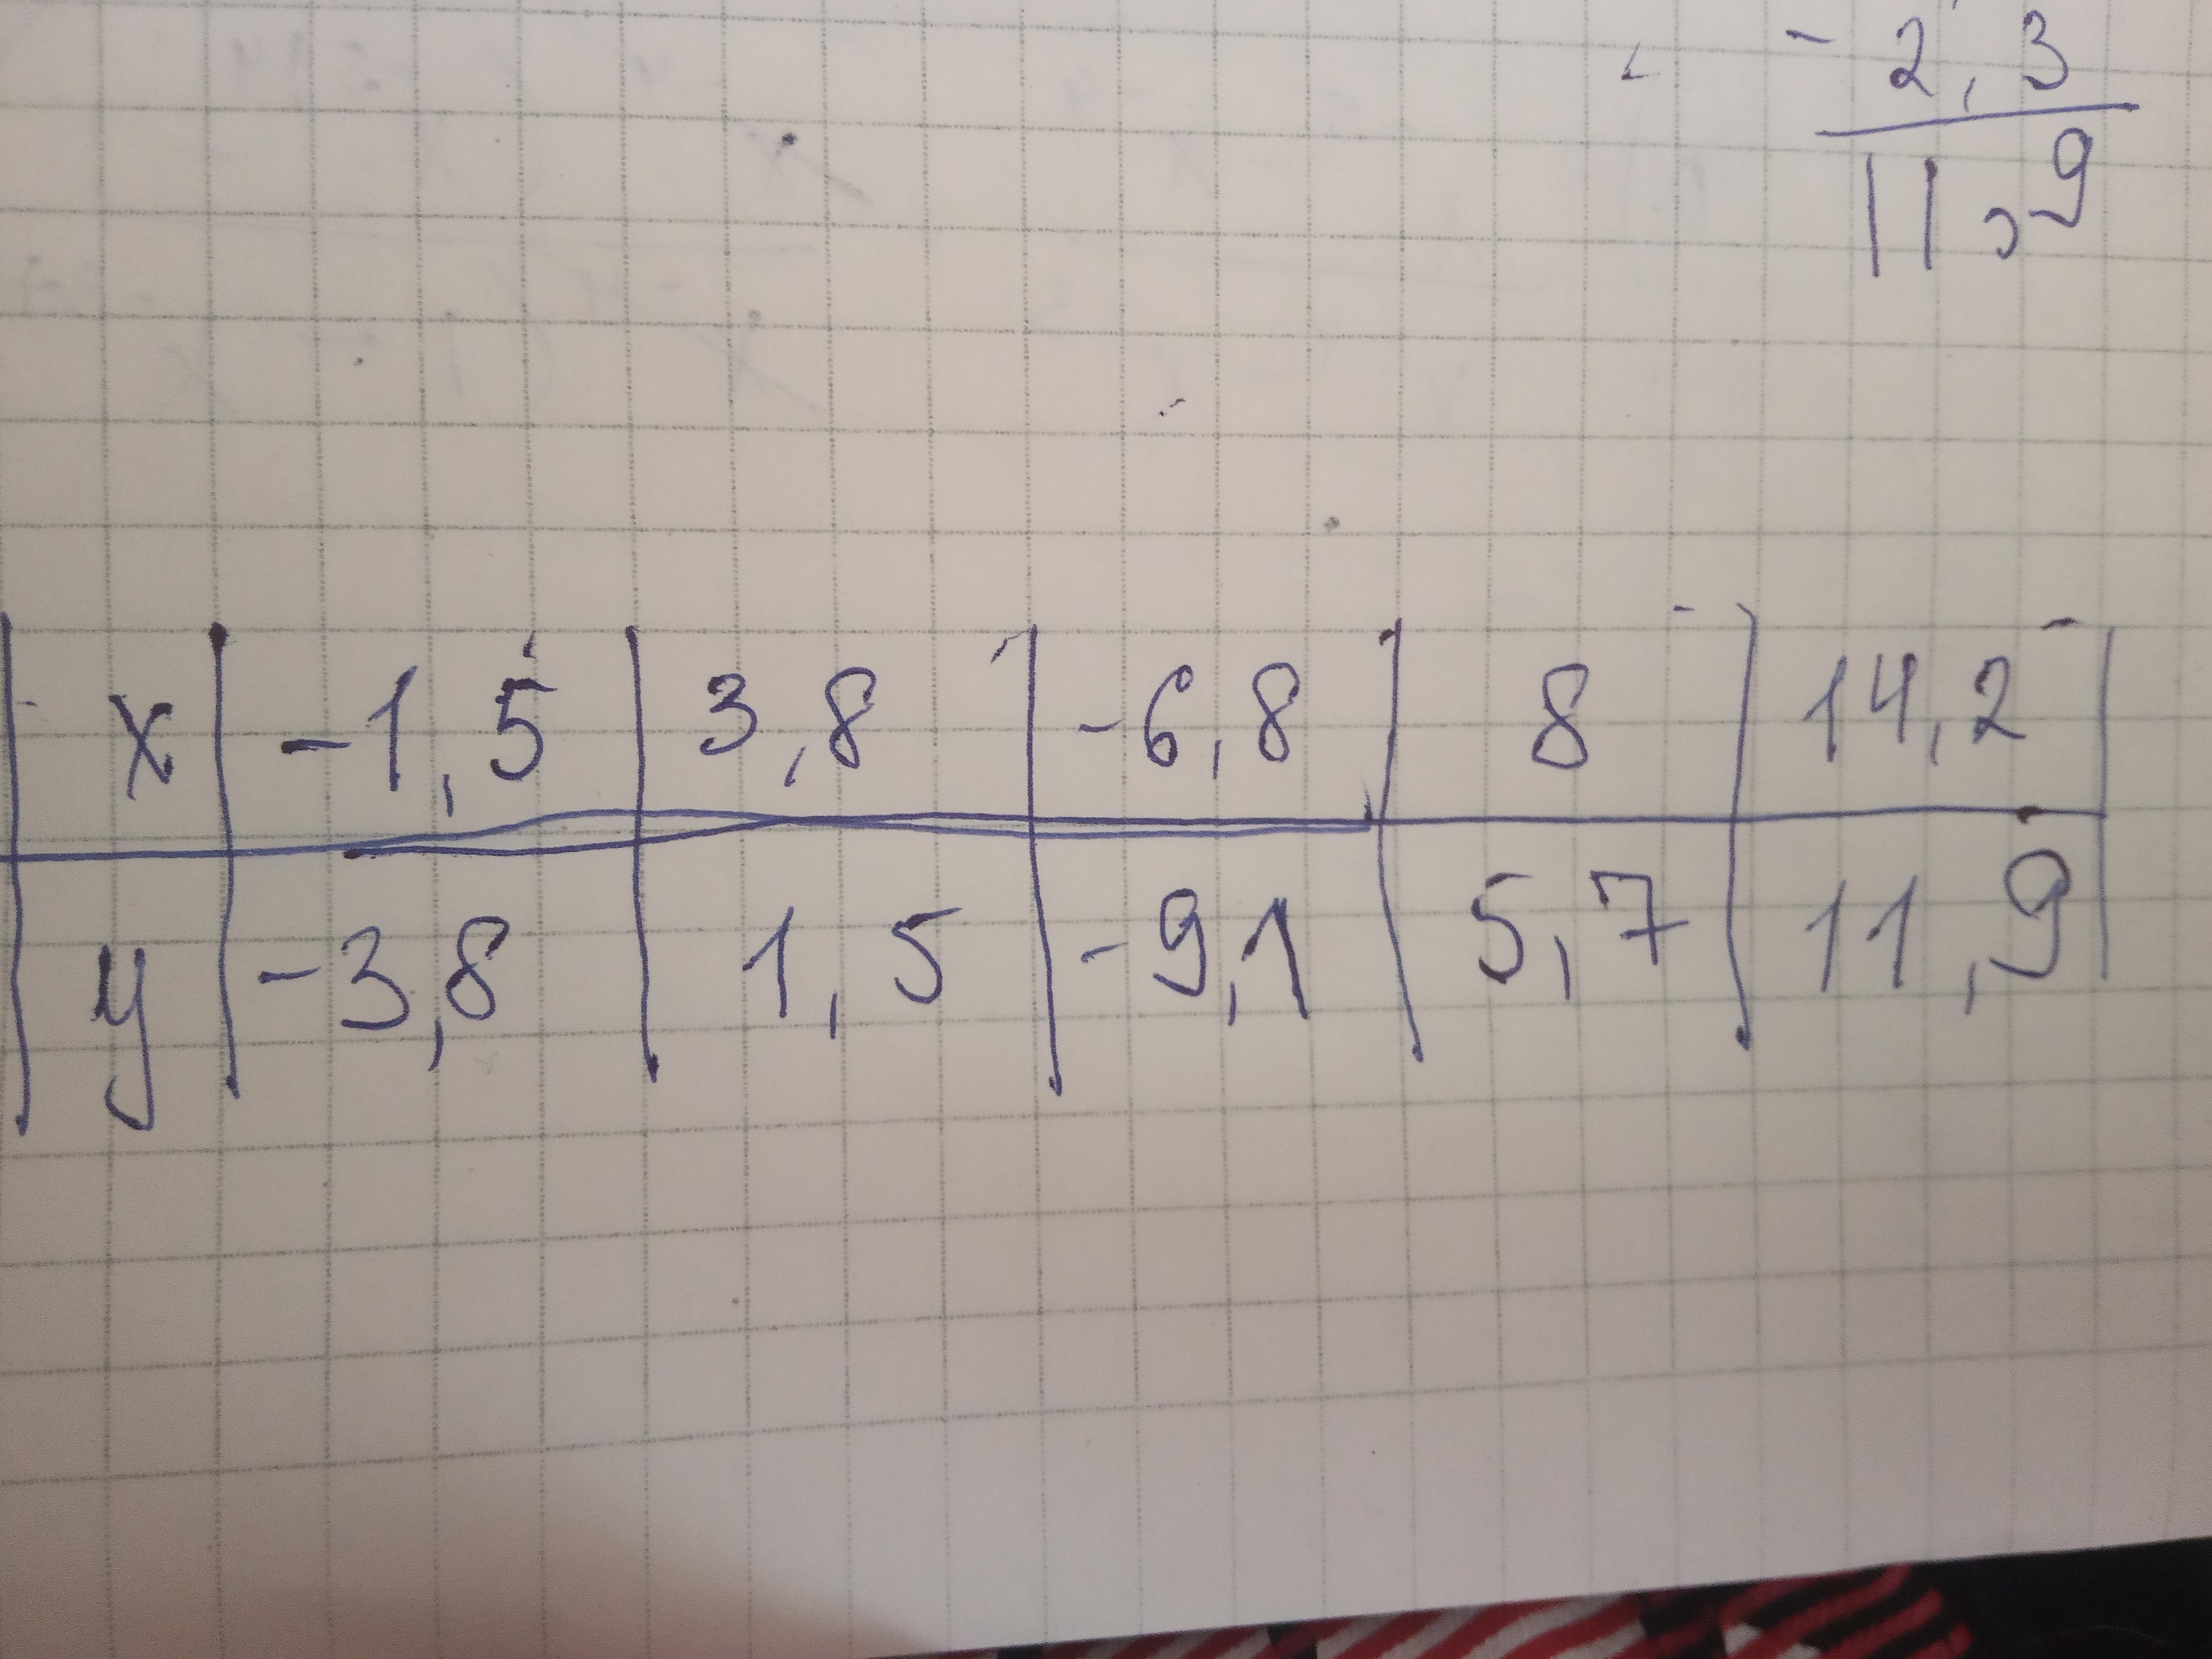 - 2,3
11,9
x -1,5 3,8 -6,8 8 14,2
y -3,8 1,5 -9,1 5,7 11,9